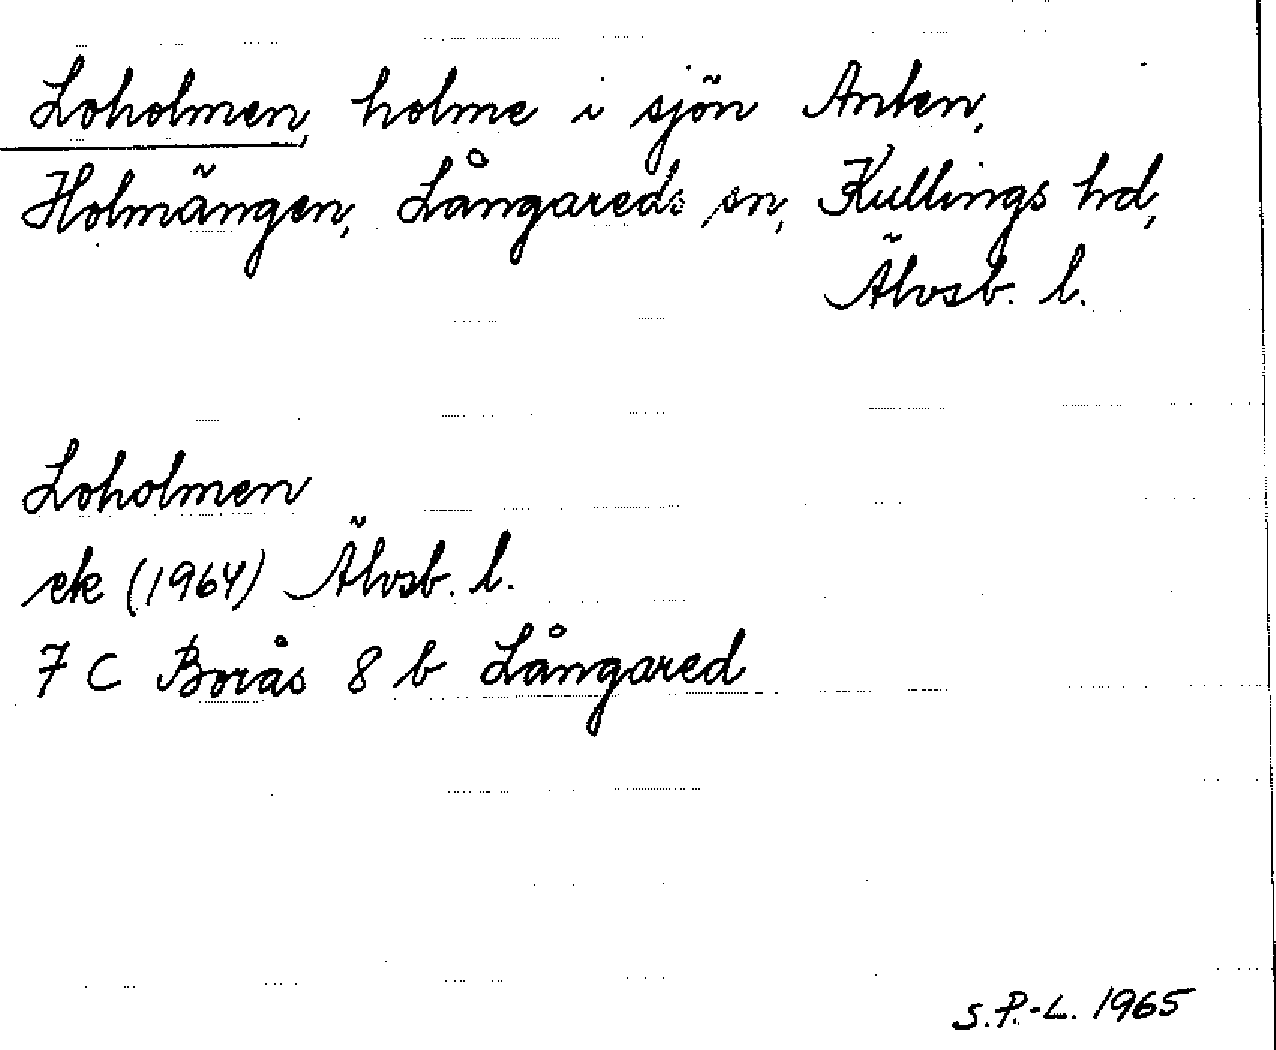 Loholmen, holme i sjön Anten,
Holmängen, Långareds sn, Kullings hd,
Älvsb. l.
Loholmen
ek (1964) Älvsb. l.
7 C Borås 8 b Långared
S.P.-L. 1965